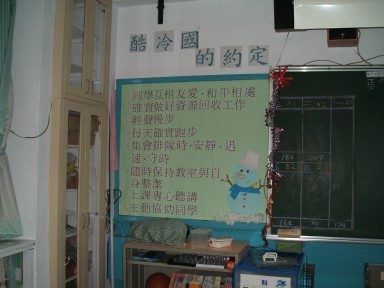 酷冷國
的約定
同學互相友愛，和平相處
確實做好資源回收工作
輕聲慢步
每天確實跑步
集會排隊時，安靜、迅
速、守時
隨時保持教室與自
身整潔
上課專心聽講
主動協助同學